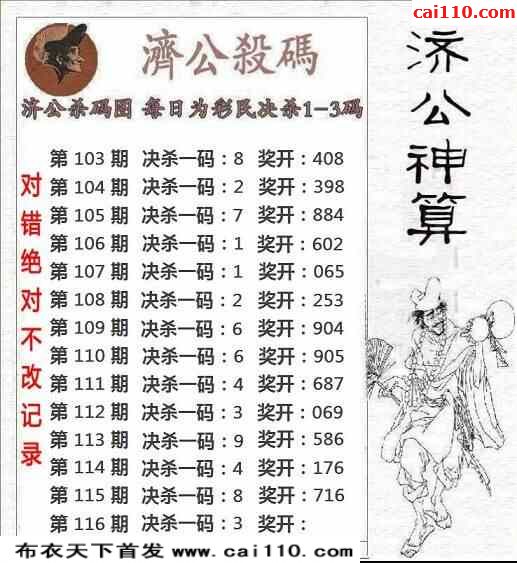 cai110.com
濟公殺碼
济公杀码图 每日为彩民决杀1-3码
济公神算
对错绝对不改记录
第 103 期 决杀一码：8 奖开：408
第 104 期 决杀一码：2 奖开：398
第 105 期 决杀一码：7 奖开：884
第 106 期 决杀一码：1 奖开：602
第 107 期 决杀一码：1 奖开：065
第 108 期 决杀一码：2 奖开：253
第 109 期 决杀一码：6 奖开：904
第 110 期 决杀一码：6 奖开：905
第 111 期 决杀一码：4 奖开：687
第 112 期 决杀一码：3 奖开：069
第 113 期 决杀一码：9 奖开：586
第 114 期 决杀一码：4 奖开：176
第 115 期 决杀一码：8 奖开：716
第 116 期 决杀一码：3 奖开：
布衣天下首发 www.cai110.com